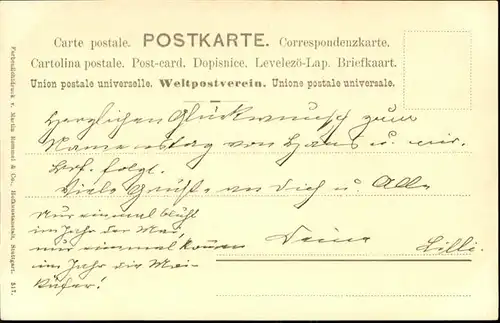 Carte postale. POSTKARTE. Correspondenzkarte.
Cartolina postale. Post-card. Dopisnice. Levelező-Lap. Briefkaart.
Union postale universelle. Weltpostverein. Unione postale universale.
Herzlichen Glückwunsch zum
Namenstag von Hans u. mir.
Brf. folgt.
Viele Grüße an Dich u. Alle
Deine Lilli.
Nur einmal blüht
im Jahr der Mai,
nur einmal
im Jahr die Mai-
käfer!
Farbenlichtdruck v. Martin Rommel & Co., Hofkunstanstalt, Stuttgart. 517.